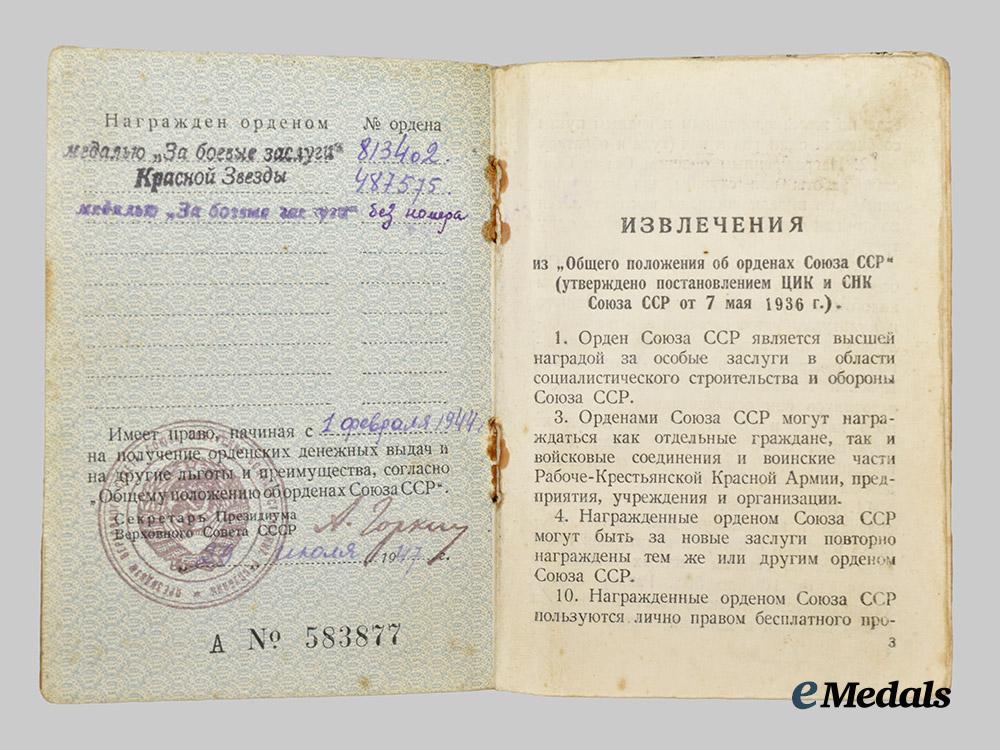 Награжден орденом № ордена
медалью „За боевые заслуги“ 813402.
Красной Звезды 487575.
медалью „За боевые заслуги“ без номера
Имеет право, начиная с 1 февраля 1944 г.
на получение орденских денежных выдач и
на другие льготы и преимущества, согласно
„Общему положению об орденах Союза ССР“.
Секретарь Президиума
Верховного Совета СССР А. Горкин
июля 1947 г.
А № 583877
ИЗВЛЕЧЕНИЯ
из „Общего положения об орденах Союза ССР“
(утверждено постановлением ЦИК и СНК
Союза ССР от 7 мая 1936 г.).
1. Орден Союза ССР является высшей
наградой за особые заслуги в области
социалистического строительства и обороны
Союза ССР.
3. Орденами Союза ССР могут награ-
ждаться как отдельные граждане, так и
войсковые соединения и воинские части
Рабоче-Крестьянской Красной Армии, пред-
приятия, учреждения и организации.
4. Награжденные орденом Союза ССР
могут быть за новые заслуги повторно
награждены тем же или другим орденом
Союза ССР.
10. Награжденные орденом Союза ССР
пользуются лично правом бесплатного про-
3
eMedals